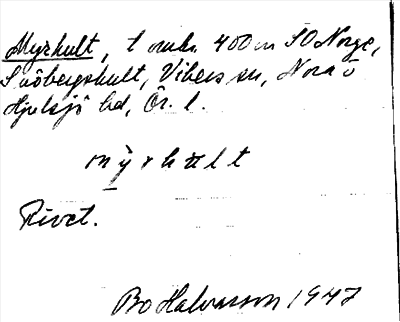 Myrhult, t omkr. 400 m SO Norge,
Snöbergshult, Vibers sn, Nora o
Hjulsjö bd, Ör. l.
mỳrhult
Rivet.
Bo Halvarsson 1947